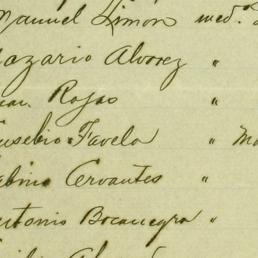 Manuel Limon med.º
Nazario Alvorez "
Juan Rojas "
Eusebio Favela " Ma
Sabino Cervantes "
Antonio Bocanegra "